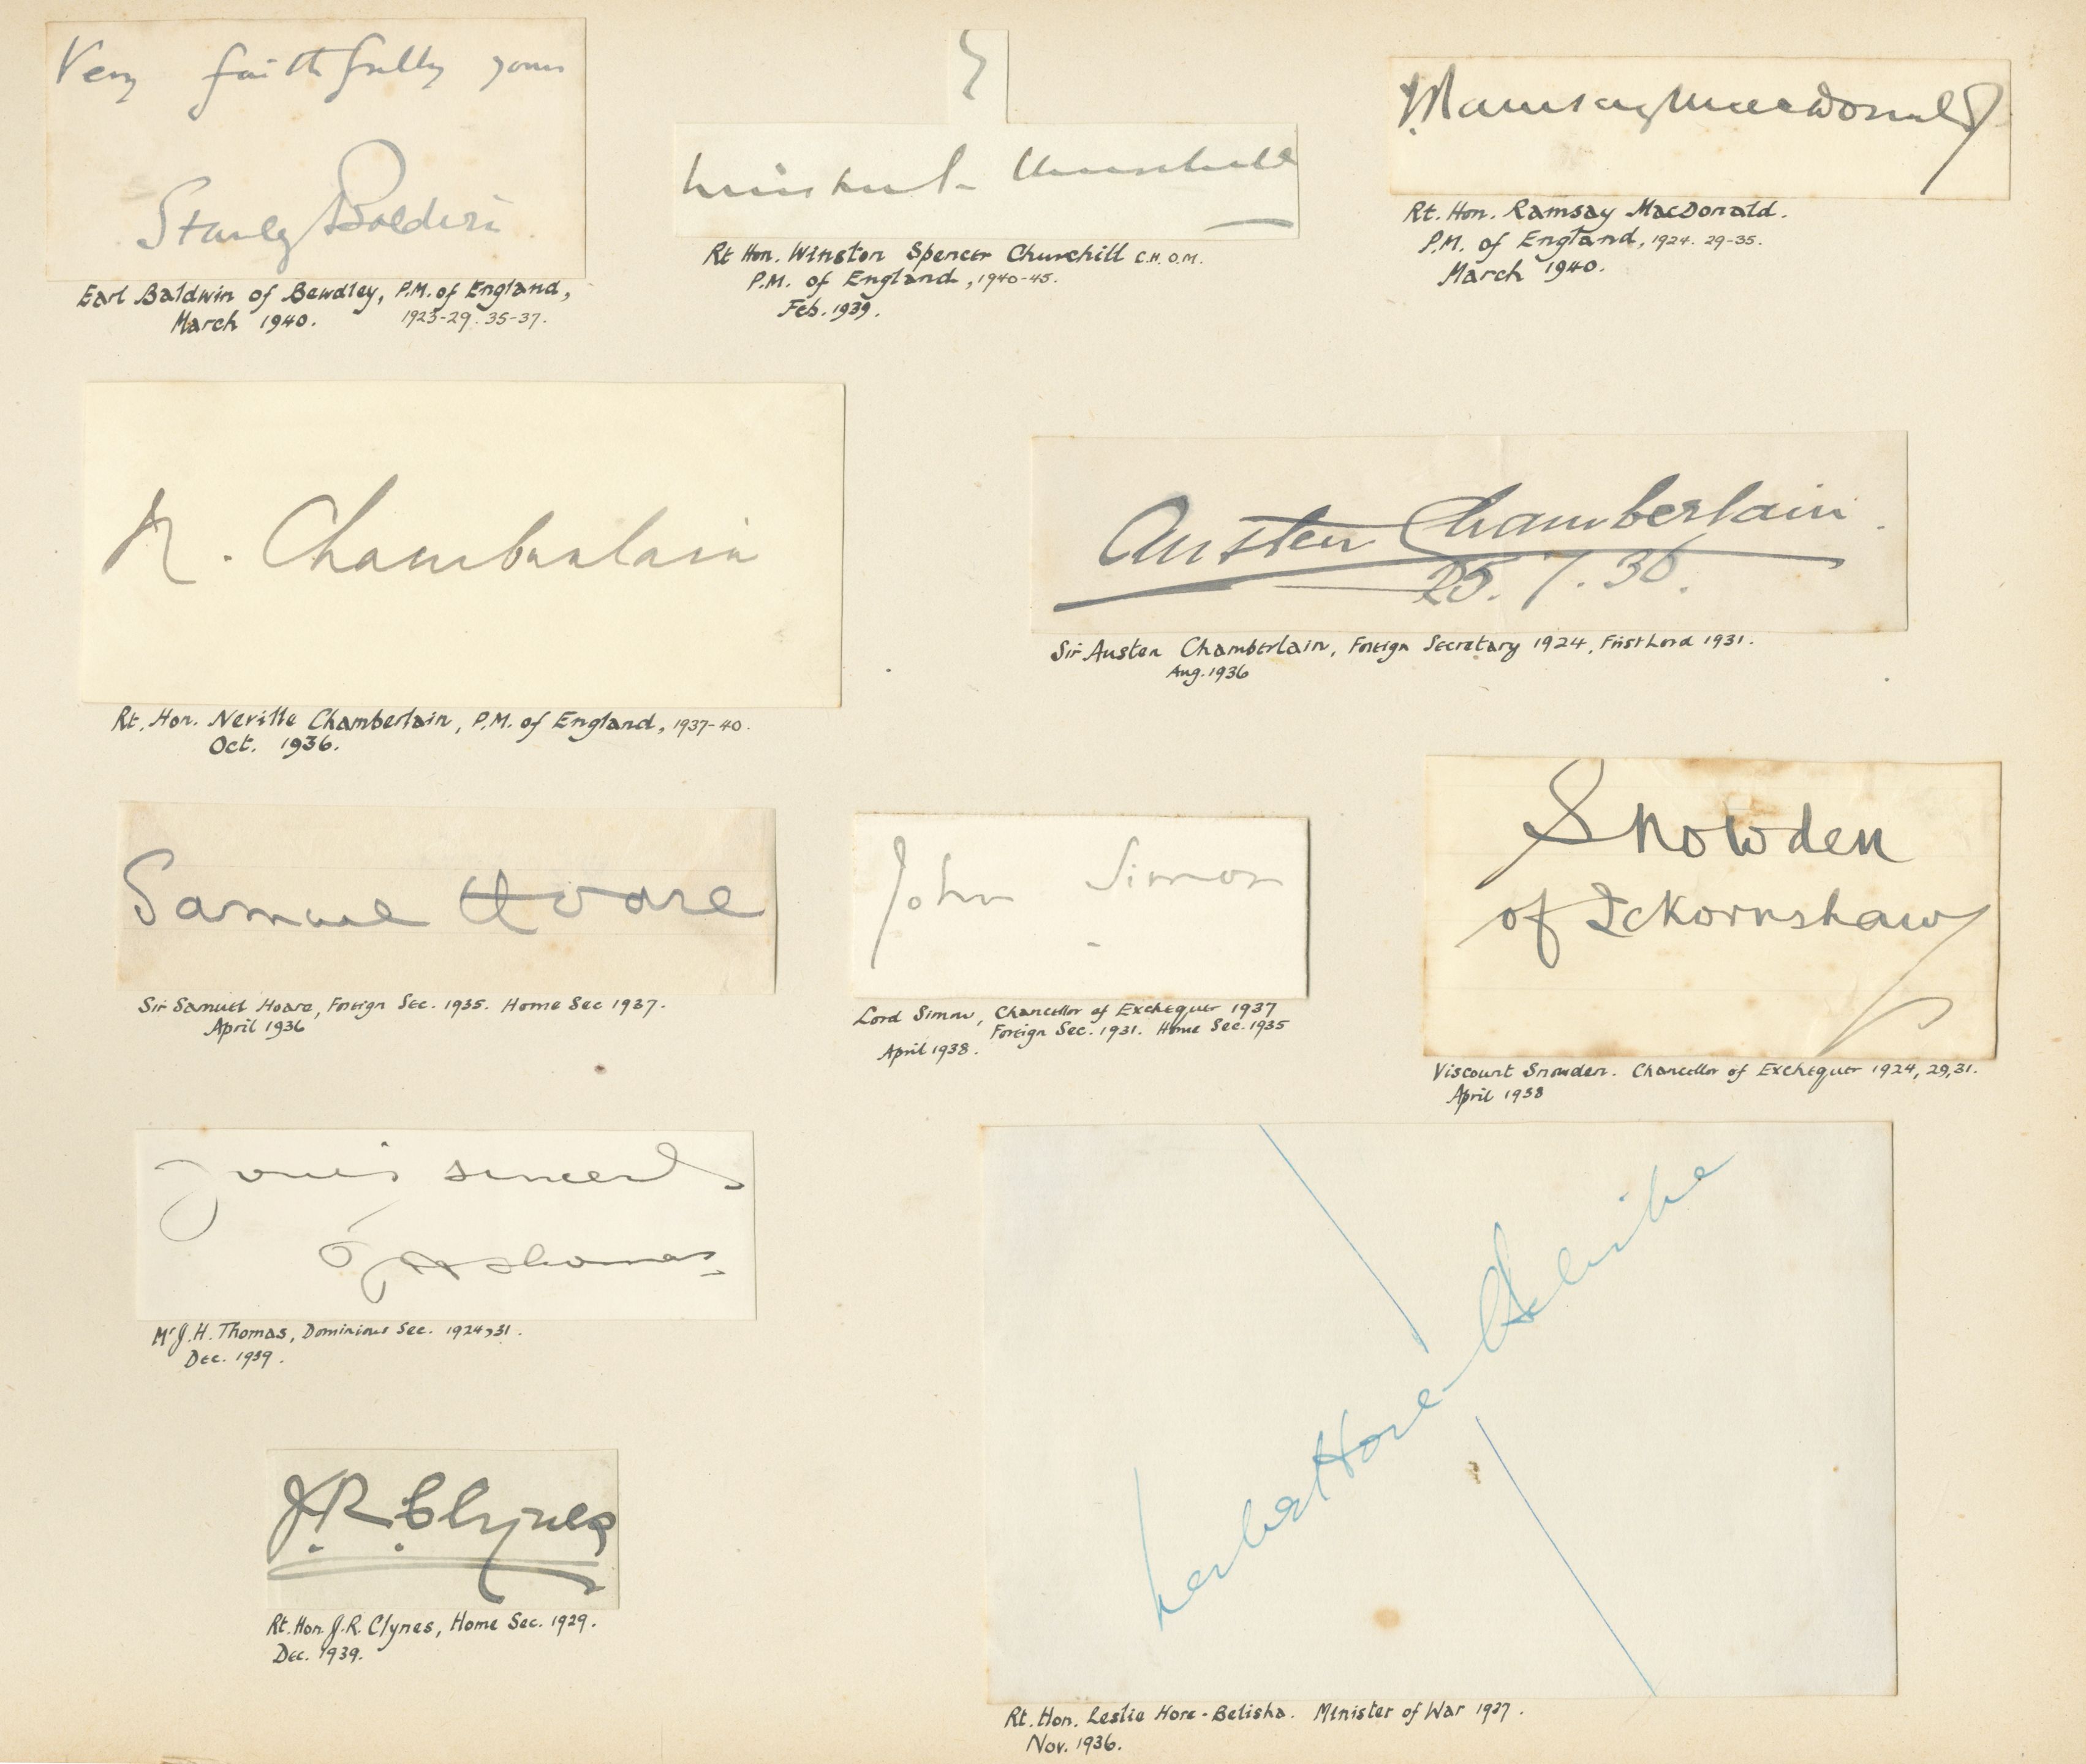 Very faithfully yours
Stanley Baldwin
Earl Baldwin of Bewdley, P.M. of England,
March 1940. 1923-29. 35-37.
Winston Churchill
Rt Hon. Winston Spencer Churchill C.H. O.M.
P.M. of England, 1940-45.
Feb. 1939.
J. Ramsay MacDonald
Rt. Hon. Ramsay MacDonald.
P.M. of England, 1924. 29-35.
March 1940.
N. Chamberlain
Rt. Hon. Neville Chamberlain, P.M. of England, 1937-40.
Oct. 1936.
Austen Chamberlain.
25.7.36.
Sir Austen Chamberlain, Foreign Secretary 1924, First Lord 1931.
Aug. 1936
Samuel Hoare
Sir Samuel Hoare, Foreign Sec. 1935. Home Sec 1937.
April 1936
John Simon
Lord Simon, Chancellor of Exchequer 1937
Foreign Sec. 1931. Home Sec. 1935
April 1938.
Snowden
of Ickornshaw
Viscount Snowden. Chancellor of Exchequer 1924, 29, 31.
April 1938
Yours sincerely
J H Thomas
Mr J.H. Thomas, Dominions Sec. 1924, 31.
Dec. 1939.
J.R. Clynes
Rt. Hon. J.R. Clynes, Home Sec. 1929.
Dec. 1939.
Leslie Hore-Belisha
Rt. Hon. Leslie Hore-Belisha. Minister of War 1937.
Nov. 1936.